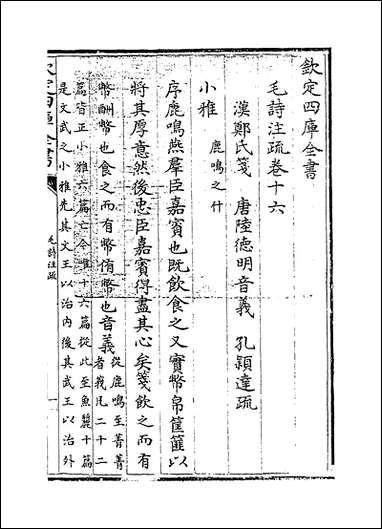 欽定四庫全書
毛詩注疏卷十六
漢鄭氏箋 唐陸德明音義 孔穎達疏
小雅 鹿鳴之什
序鹿鳴燕羣臣嘉賓也既飲食之又實幣帛筐篚以
將其厚意然後忠臣嘉賓得盡其心矣箋飲之而有
幣酬幣也食之而有幣侑幣也音義從鹿鳴至菁菁
者莪凡二十二
篇皆正小雅六篇亡今唯十六篇從此至魚麗十篇
是文武之小雅先其文王以治内後其武王以治外
欽定四庫全書
毛詩注疏
一